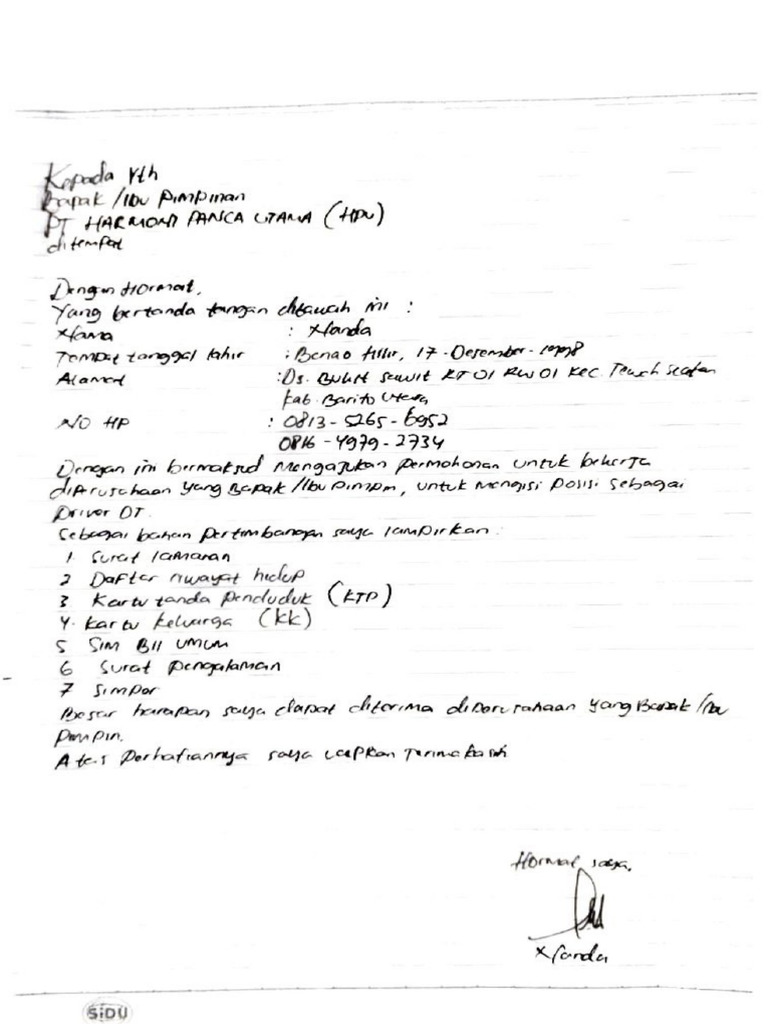 Kepada Yth
Bapak/Ibu Pimpinan
PT HARMONI PANCA UTAMA (HPU)
ditempat
Dengan Hormat,
Yang bertanda tangan dibawah ini :
Nama : Nanda
Tempat tanggal lahir : Benao Hilir, 17-Desember-1998
Alamat : Ds. Bukit Sawit RT 01 RW 01 Kec Teweh Selatan
Kab. Barito Utara
NO HP : 0813-5265-6952
0816-4979-2734
Dengan ini bermaksud mengajukan permohonan untuk bekerja
diperusahaan yang Bapak/Ibu pimpin, untuk mengisi posisi sebagai
Driver DT.
Sebagai bahan pertimbangan saya lampirkan :
1 Surat lamaran
2 Daftar riwayat hidup
3 Kartu tanda penduduk (KTP)
4. Kartu keluarga (KK)
5 SIM BII UMUM
6 Surat pengalaman
7 Simper
Besar harapan saya dapat diterima diperusahaan yang Bapak/Ibu
pimpin.
Atas perhatiannya saya ucapkan terimakasih
Hormat saya,
Nanda
SiDU